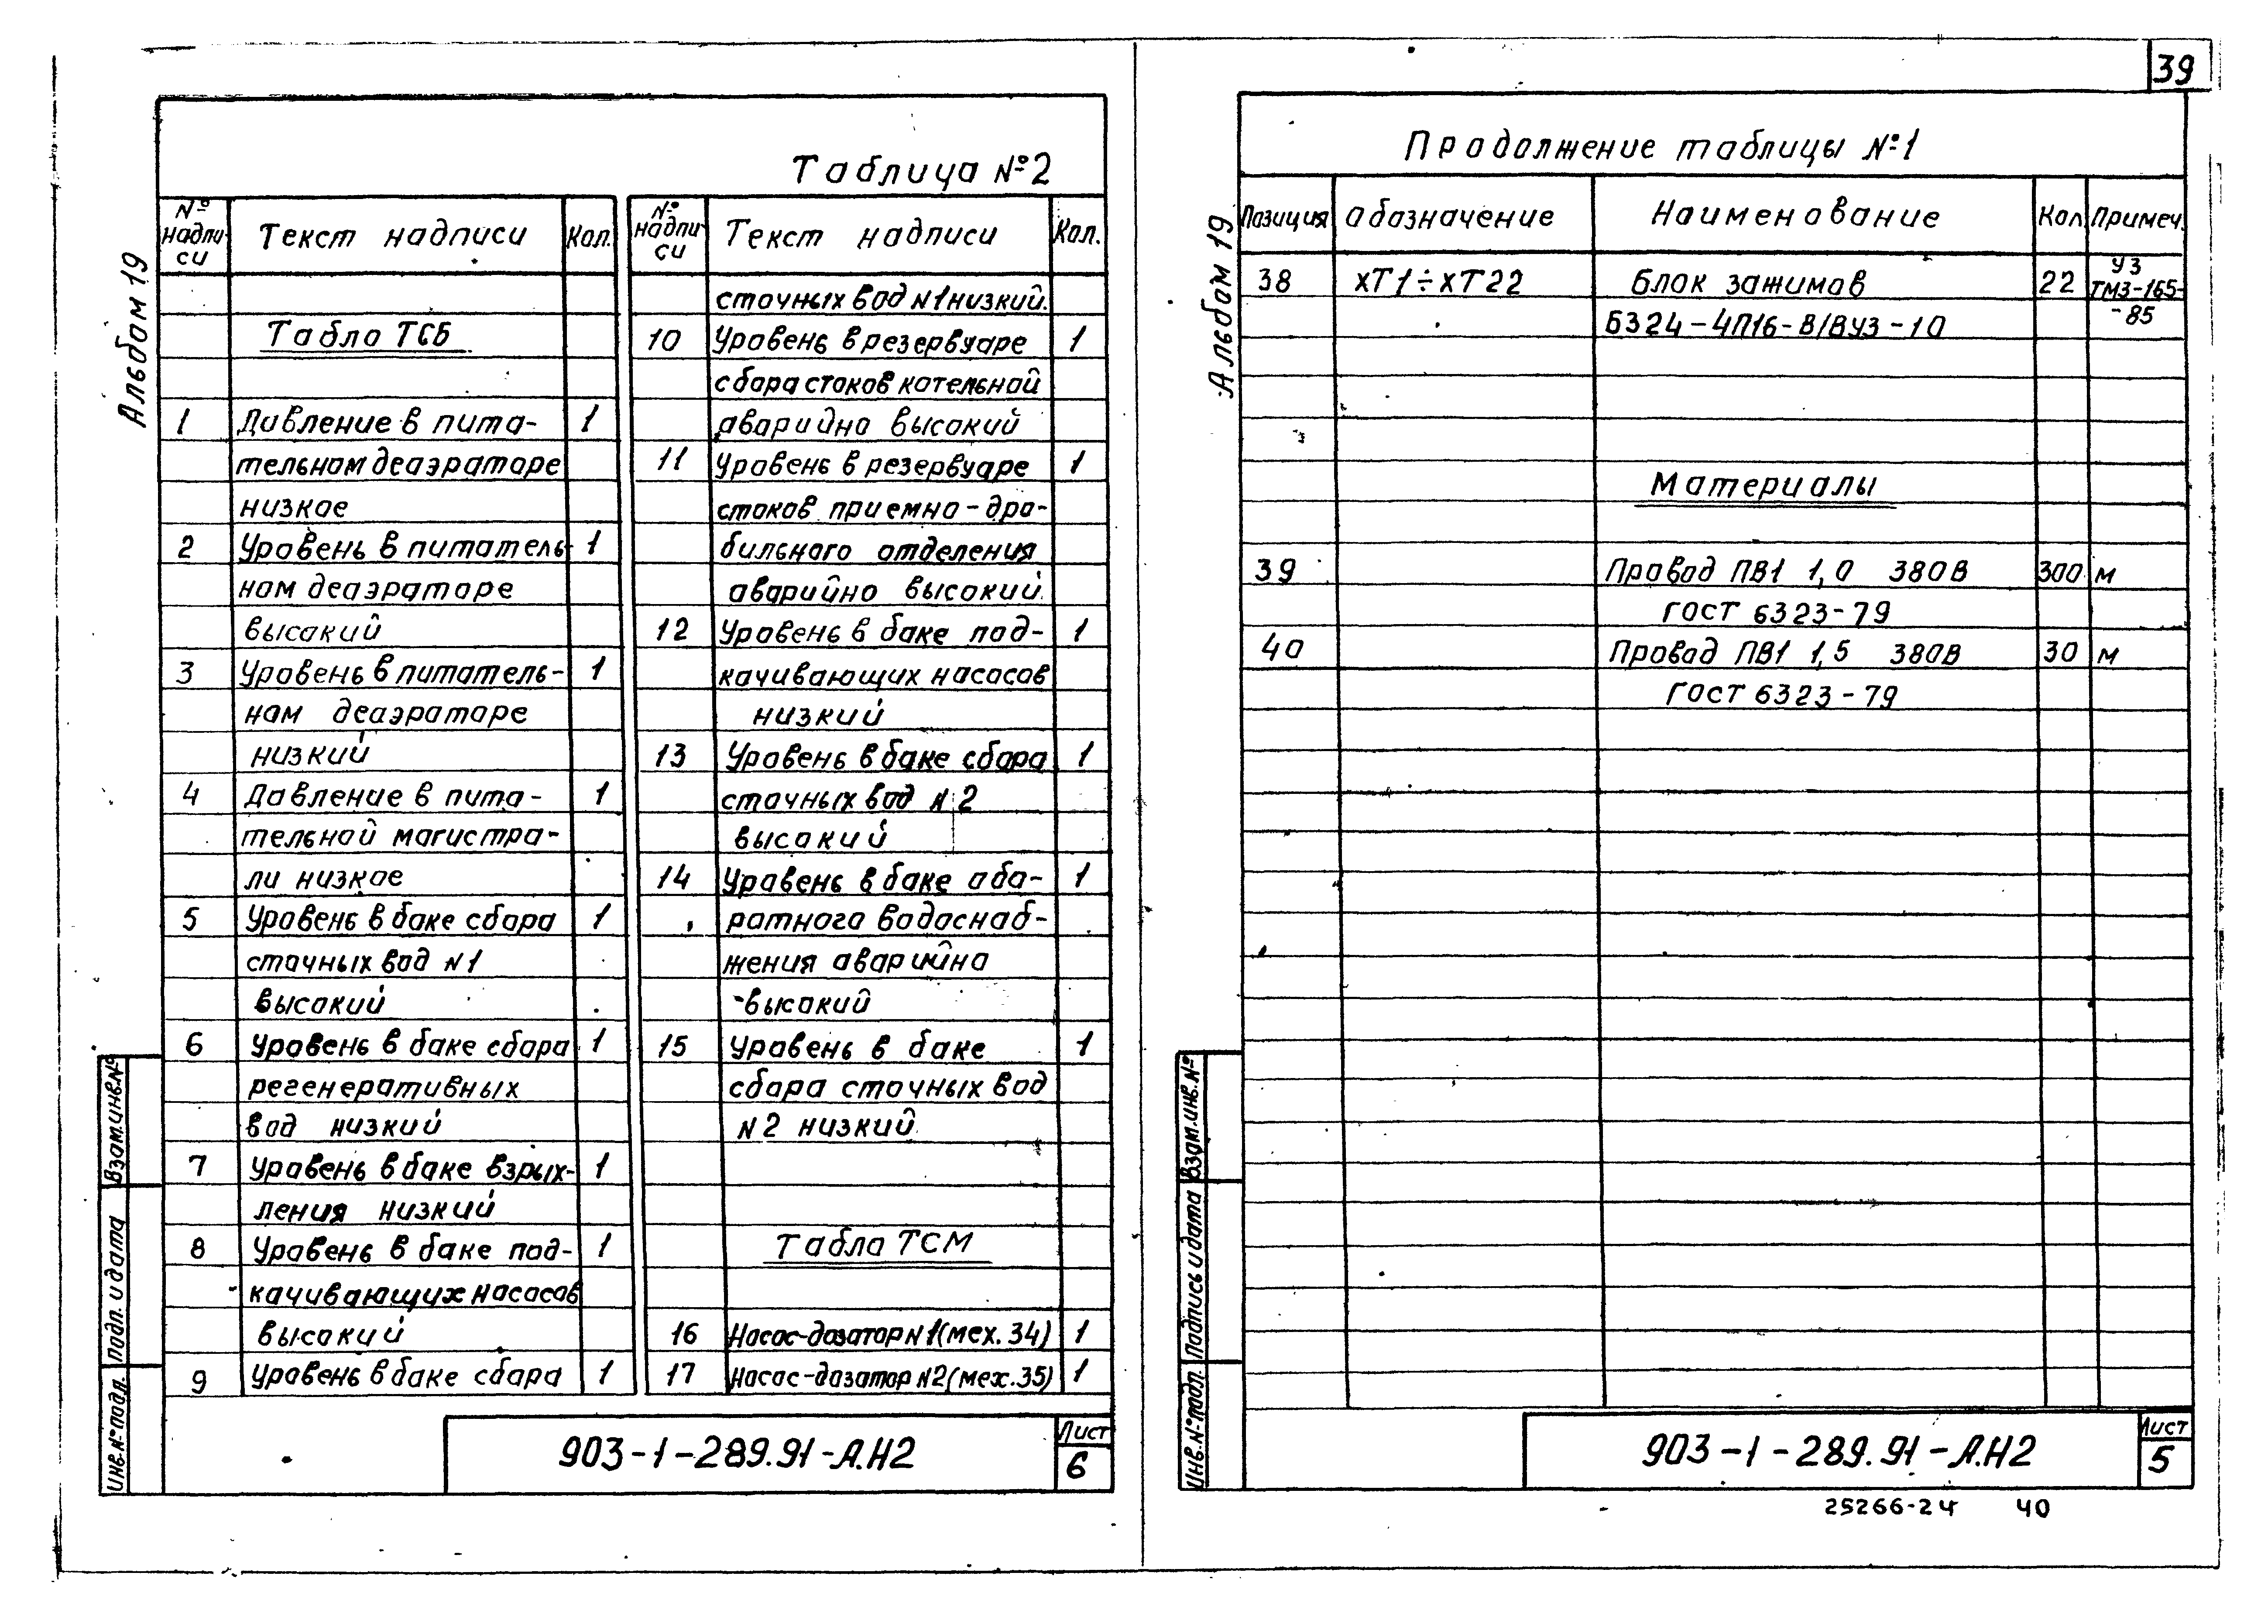 39
Альбом 19
Таблица №2
№ надпи-си Текст надписи Кол. № надпи-си Текст надписи Кол.
Табло ТСБ
1 Давление в пита- 1
тельном деаэраторе
низкое
2 Уровень в питатель- 1
ном деаэраторе
высокий
3 Уровень в питатель- 1
ном деаэраторе
низкий
4 Давление в пита- 1
тельной магистра-
ли низкое
5 Уровень в баке сбора 1
сточных вод N1
высокий
6 Уровень в баке сбора 1
регенеративных
вод низкий
7 Уровень в баке взрых- 1
ления низкий
8 Уровень в баке под- 1
качивающих насосов
высокий
9 Уровень в баке сбора 1
сточных вод N1 низкий.
10 Уровень в резервуаре 1
сбора стоков котельной
аварийно высокий
11 Уровень в резервуаре 1
стоков приемно-дро-
бильного отделения
аварийно высокий.
12 Уровень в баке под- 1
качивающих насосов
низкий
13 Уровень в баке сбора 1
сточных вод N2
высокий
14 Уровень в баке обо- 1
ротного водоснаб-
жения аварийно
высокий
15 Уровень в баке 1
сбора сточных вод
N2 низкий.
Табло ТСМ
16 Насос-дозатор N1 (мех. 34) 1
17 Насос-дозатор N2 (мех. 35) 1
Взам.инв.№
Подп. и дата
Инв.№подл.
903-1-289.91-А.Н2
Лист
6
Альбом 19
Продолжение таблицы №1
Позиция Обозначение Наименование Кол. Примеч.
38 ХТ1÷ХТ22 Блок зажимов 22 У3
ТМ3-165-
Б324-4П16-В/ВУ3-10 -85
Материалы
39 Провод ПВ1 1,0 380В 300 м
ГОСТ 6323-79
40 Провод ПВ1 1,5 380В 30 м
ГОСТ 6323-79
Взам.инв.№
Подпись и дата
Инв.№подл.
903-1-289.91-А.Н2
Лист
5
25266-24 40